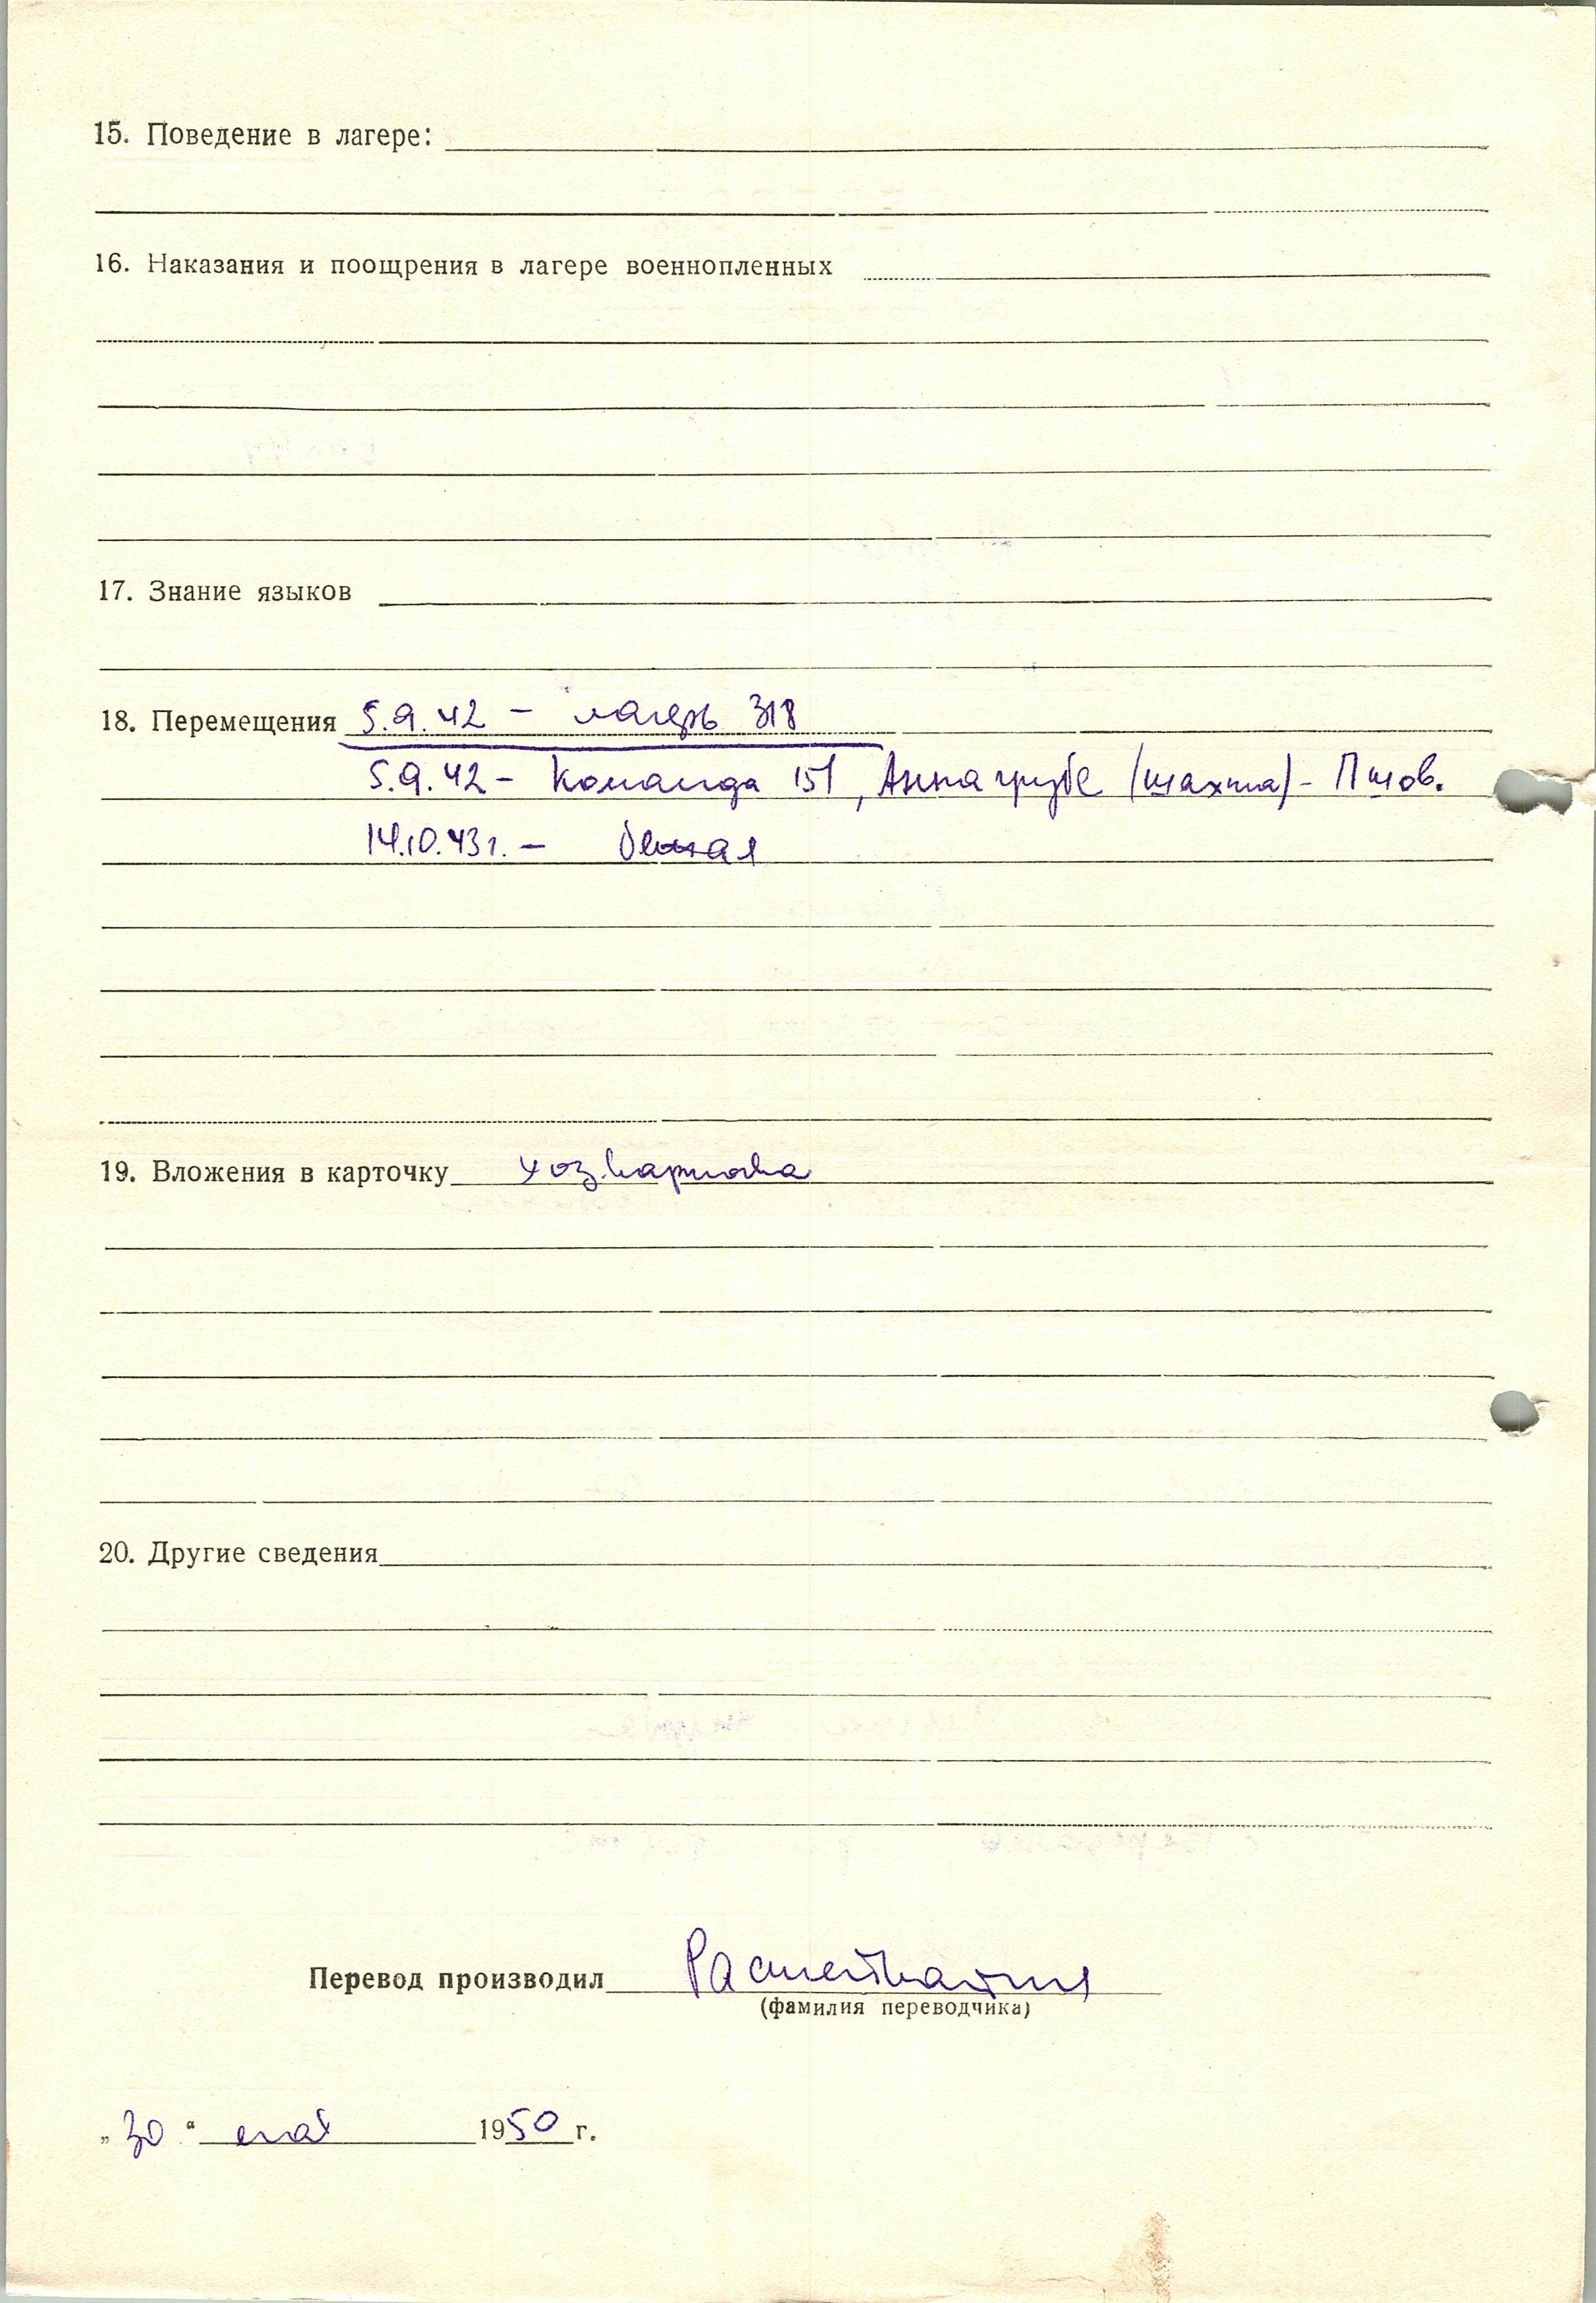 15. Поведение в лагере:
16. Наказания и поощрения в лагере военнопленных
17. Знание языков
18. Перемещения 5.9.42 – лагерь 318
5.9.42 – Команда 151, Анна грубе (шахта) – Пшов.
14.10.43 г. – бежал
19. Вложения в карточку хоз. карточка
20. Другие сведения
Перевод производил
(фамилия переводчика)
„30“ мая 1950 г.